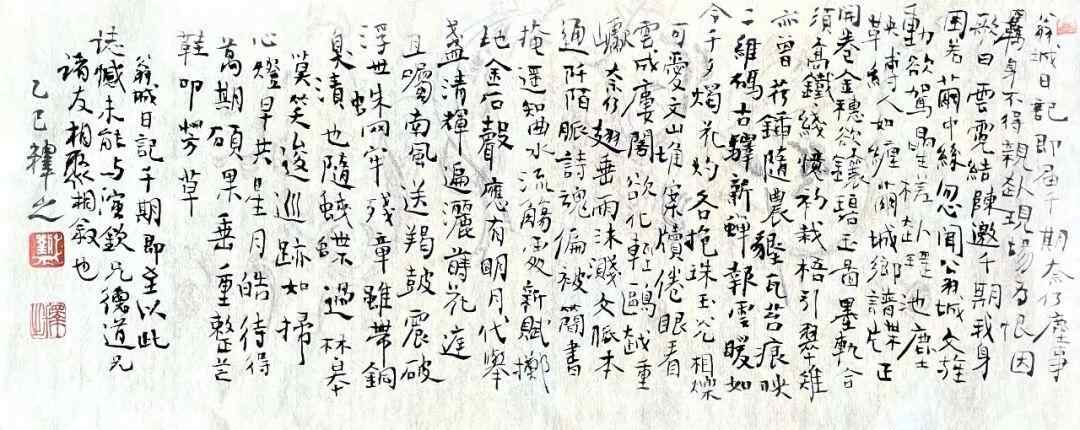 翁城日記即屆千期奈何塵事
羈身不得親赴現場為恨因
歌曰雲霓結陣邀千期我身
困若繭中絲忽聞翁城文雅
動欲駕星槎赴躍池塵
重
映博人如纏蒲城鄉譜葉正
草
開卷金穗欲鑲碧玉圖墨軌合
須高鐵綫憶初栽梧引翠雛
亦曾荷鋤隨農墾瓦苔痕映
二維碼古驛新蟬報雲暖如
今千夕燭花灼各抱珠玉光相爍
可愛文山堆案牘倦眼看
雲成廔閣欲化輕鷗越重
巘奈何翅垂雨沫濺女牆本
通阡陌脈詩魂偏被簡書
掩遥知曲水流觴處新賦擲
地金石聲應有明月代舉
盞清輝遍灑蒔花庭
且囑南風送羯鼓震破
浮世朱網牢殘章雖帶銅
臭漬也隨螢蝶過林皋
莫笑逡巡跡如掃
心燈早共星月皓待得
萬期碩果垂重整芒
鞋叩芳草
翁城日記千期即至以此
誌憾未能與演欽兄德道兄
諸友相聚相敘也
乙巳釋之